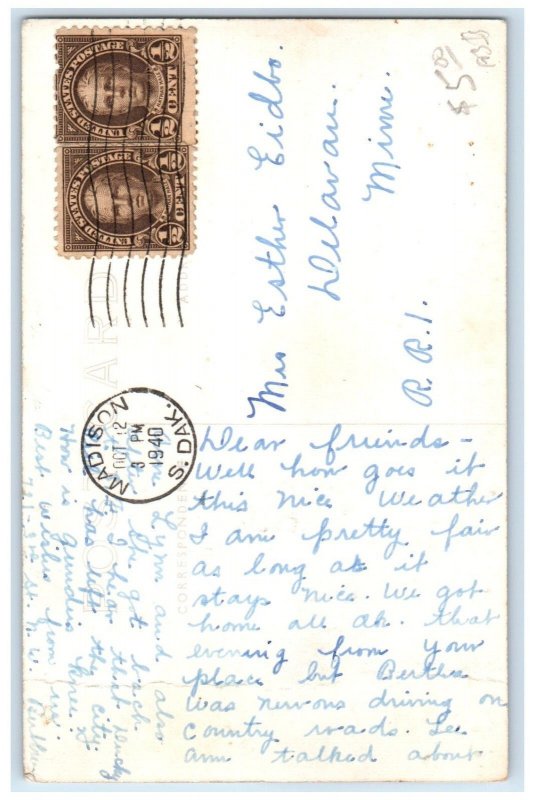 UNITED STATES POSTAGE
½ CENT ½
UNITED STATES POSTAGE
½ CENT ½
$5.00
MADISON
OCT 12
3 PM
1940
S. DAK.
POST CARD
CORRESPONDENCE
Mrs Esther Eidbo.
Delavan.
Minn.
R.R.1.
Dear friends -
Well how goes it
this nice weather
I am pretty fair
as long as it
stays nice. We got
home all ok. that
evening from your
place but Bertha
was nervous driving on
country roads. Lee
ann talked about
Lynn and also
She got back
I hear that
has left the city
How is knee
Best wishes from
St. N.W.